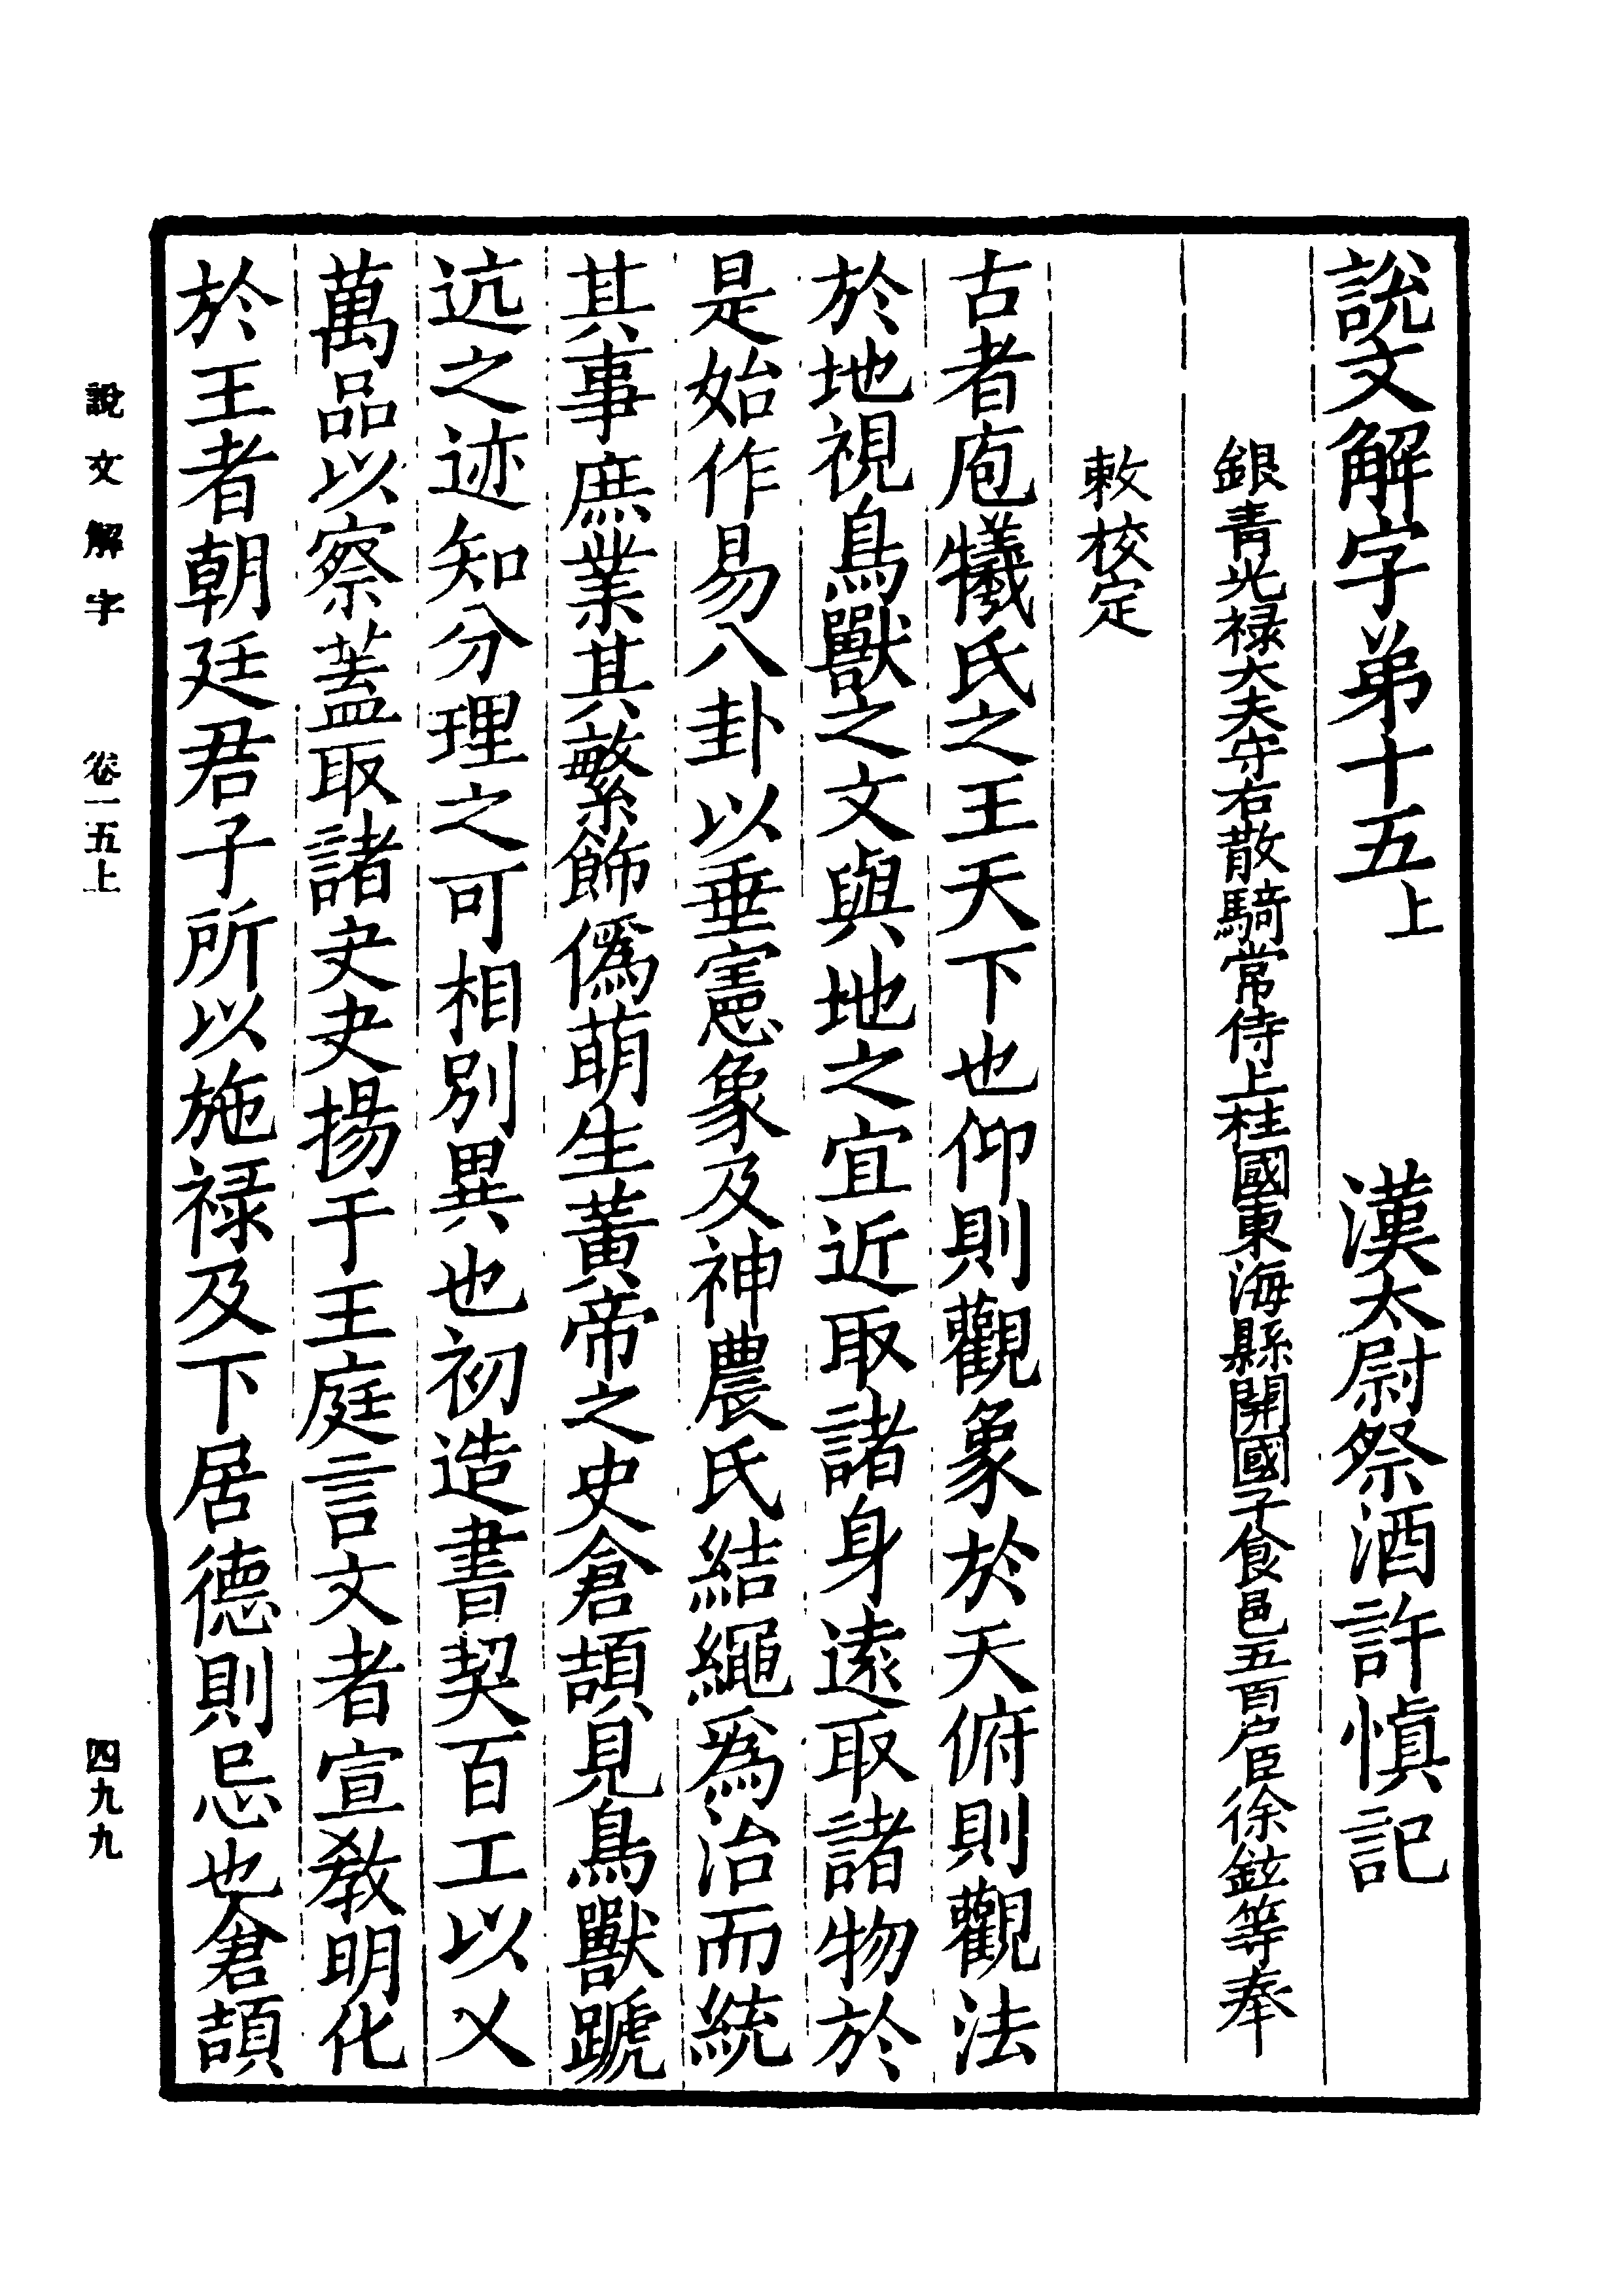 說文解字弟十五上 漢太尉祭酒許慎記
銀青光禄大夫守右散騎常侍上柱國東海縣開國子食邑五百户臣徐鉉等奉
敕校定
古者庖犧氏之王天下也仰則觀象於天俯則觀法
於地視鳥獸之文與地之宜近取諸身遠取諸物於
是始作易八卦以垂憲象及神農氏結繩爲治而統
其事庶業其繁飾僞萌生黃帝之史倉頡見鳥獸蹏
迒之迹知分理之可相別異也初造書契百工以乂
萬品以察蓋取諸夬夬揚于王庭言文者宣敎明化
於王者朝廷君子所以施禄及下居德則忌也倉頡
說文解字 卷一五上 四九九